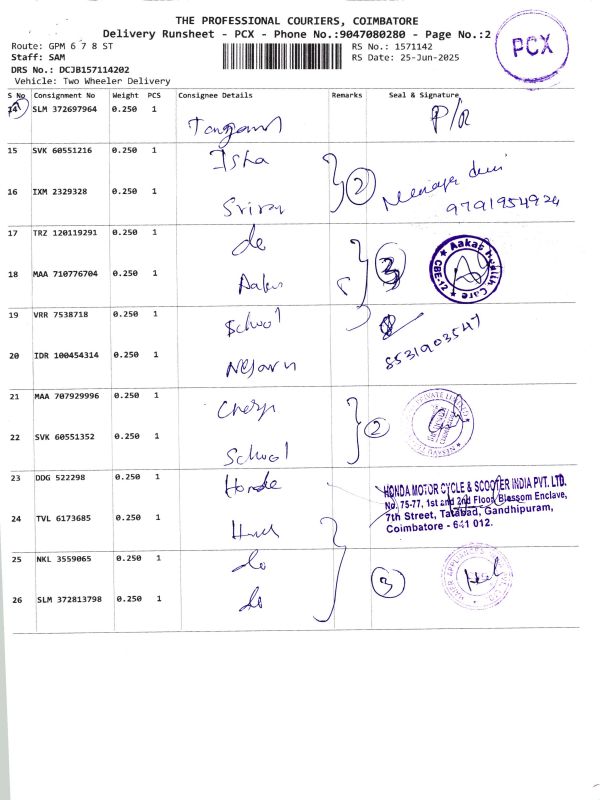 THE PROFESSIONAL COURIERS, COIMBATORE
Delivery Runsheet - PCX - Phone No.:9047080280 - Page No.:2
Route: GPM 6 7 8 ST
RS No.: 1571142
Staff: SAM
RS Date: 25-Jun-2025
DRS No.: DCJB157114202
Vehicle: Two Wheeler Delivery
PCX
S No Consignment No Weight PCS Consignee Details Remarks Seal & Signature
14 SLM 372697964 0.250 1 P/R
15 SVK 60551216 0.250 1 Isha
16 IXM 2329328 0.250 1 2
9791954924
17 TRZ 120119291 0.250 1 do 3 Aakai Health Care CBE-12
18 MAA 710776704 0.250 1
19 VRR 7538718 0.250 1 School
8531903547
20 IDR 100454314 0.250 1
21 MAA 707929996 0.250 1
2
22 SVK 60551352 0.250 1 School
23 DDG 522298 0.250 1 Honda
HONDA MOTOR CYCLE & SCOOTER INDIA PVT. LTD.
No. 75-77, 1st and 2nd Floor, Blossom Enclave,
7th Street, Tatabad, Gandhipuram,
Coimbatore - 641 012.
24 TVL 6173685 0.250 1
25 NKL 3559065 0.250 1 do
3
26 SLM 372813798 0.250 1 do